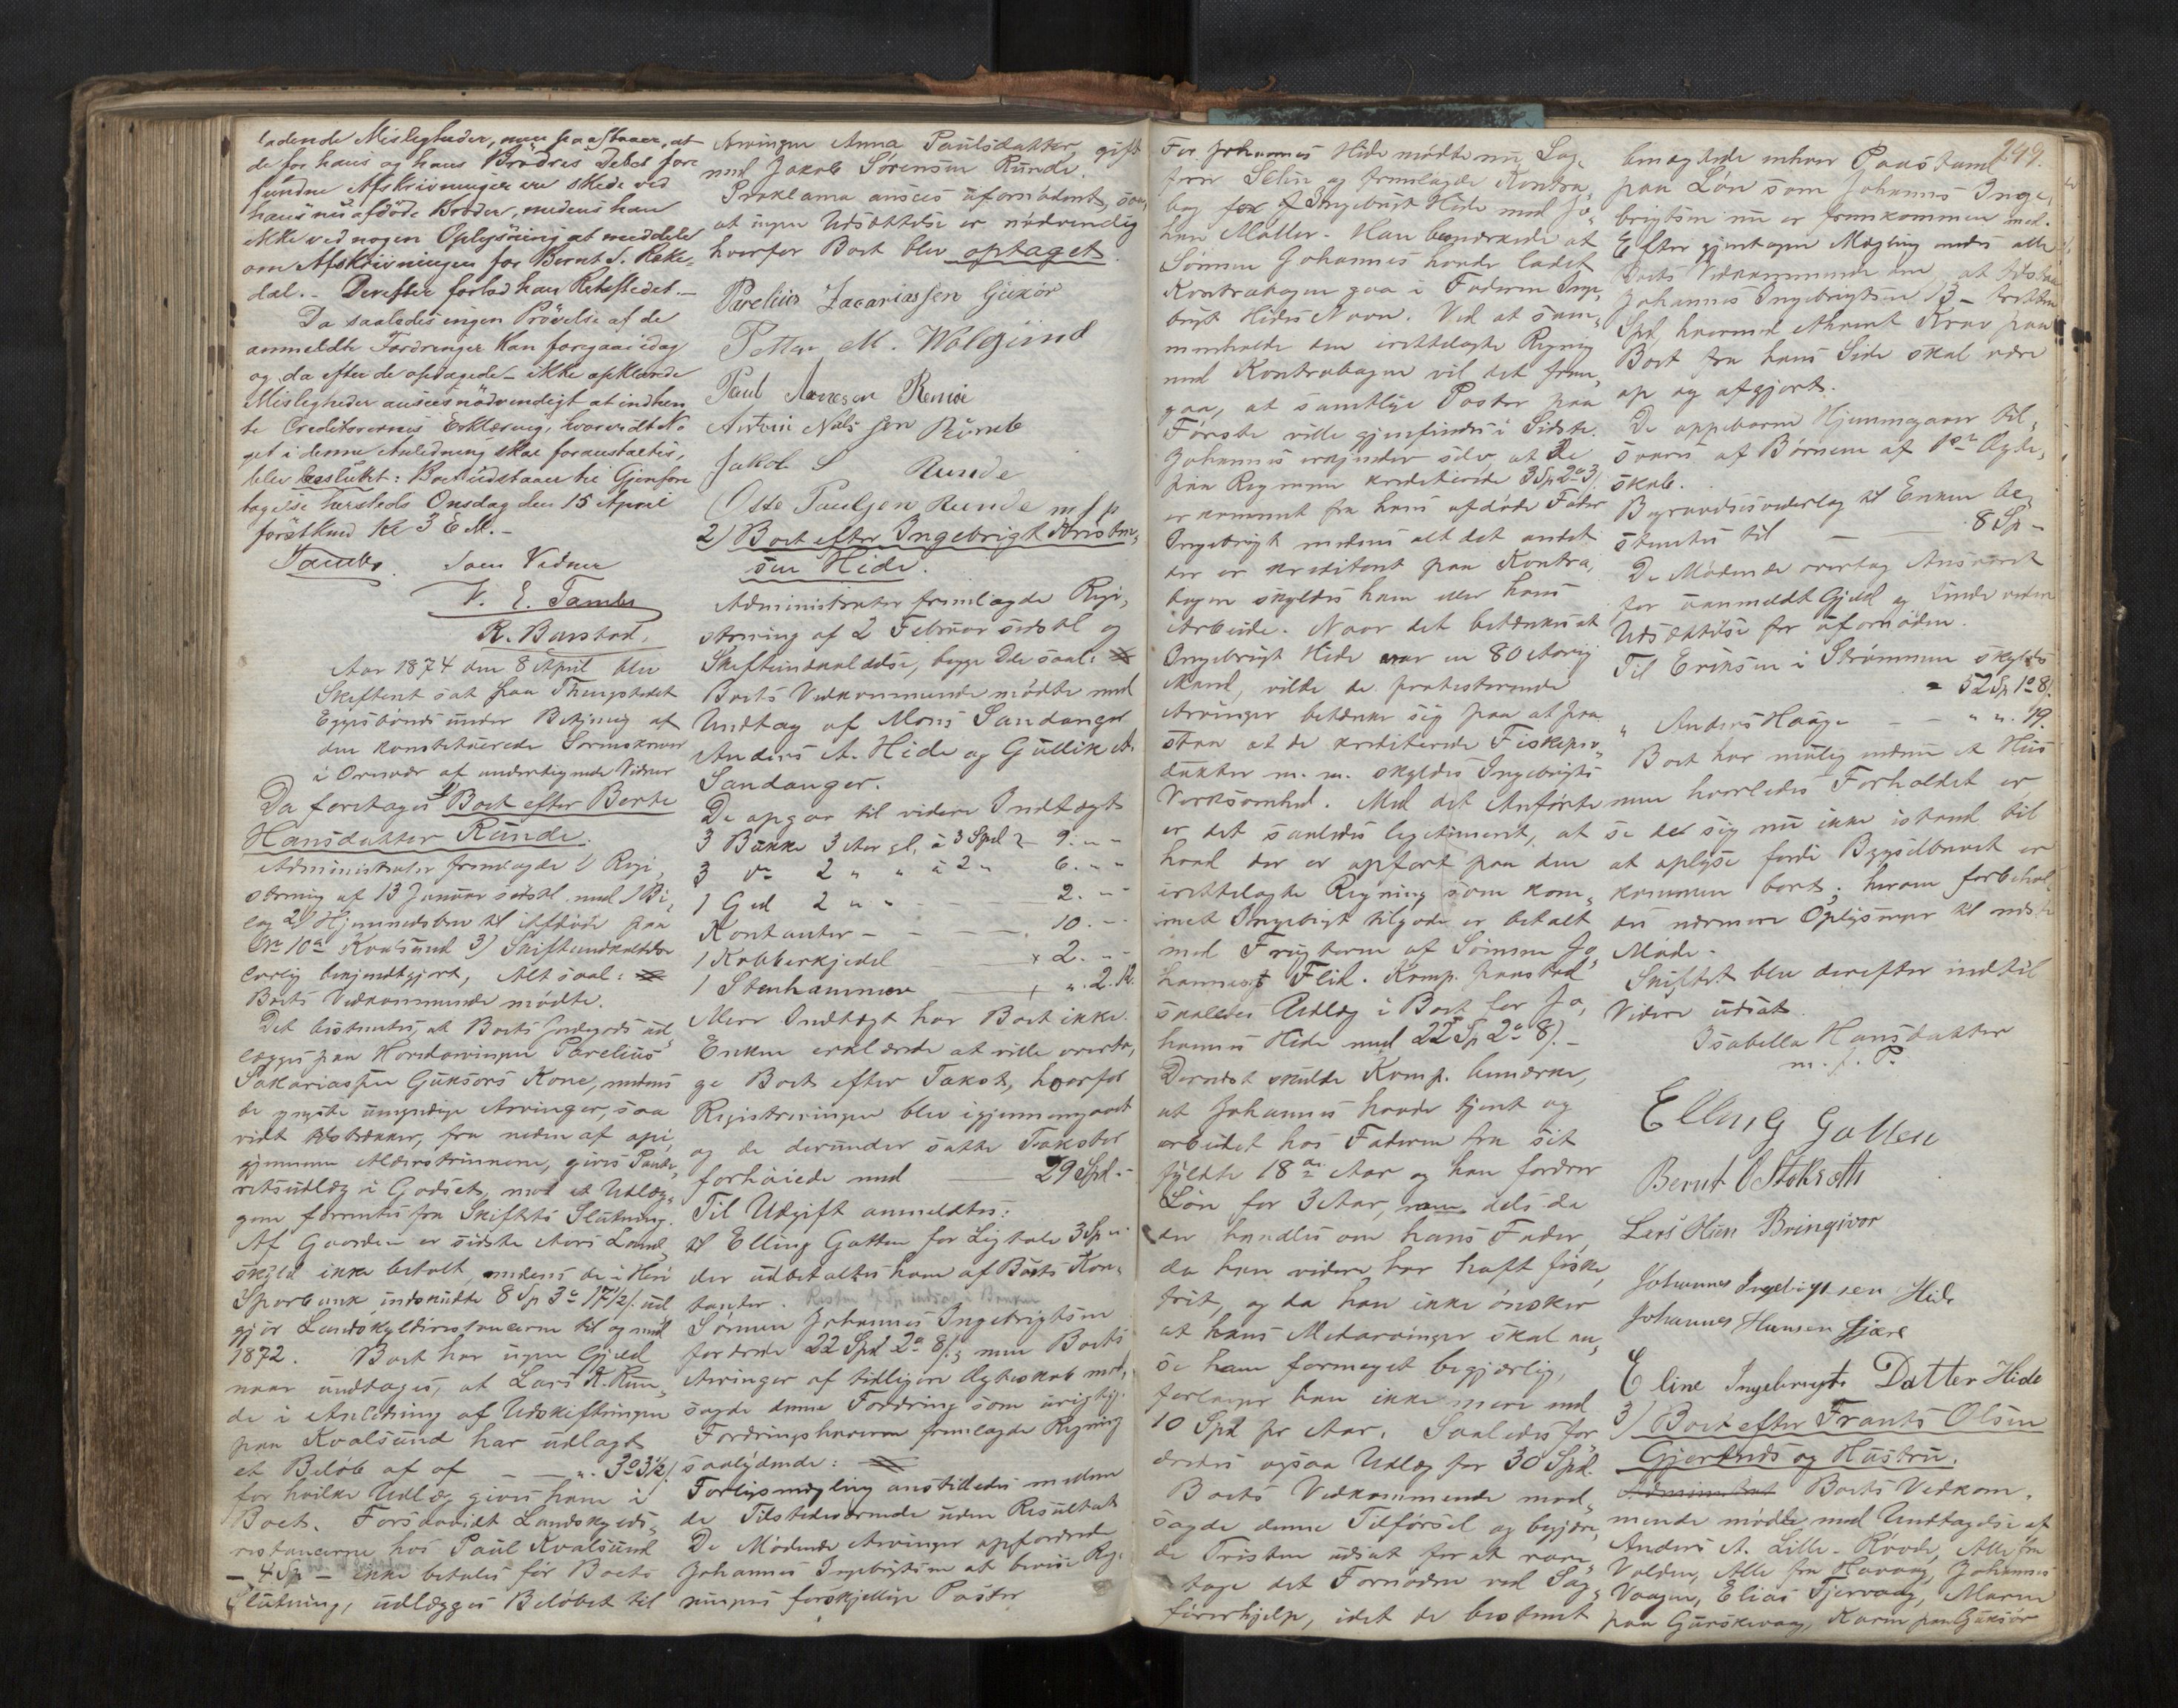 ladende Misligheder, men paastaaer, at
de for hans og hans Brødres Debet fore
fundne Afskrivninger er skede ved
hans nu afdøde Broder, medens han
ikke ved nogen Oplysning at meddele
om Afskrivningen for Bernt S. Hake-
dal. - Derefter forlod han Retsstedet. -
Da saaledes ingen Prøvelse af de
anmeldte Fordringer kan foregaa idag
og da efter de opdagede - ikke opklarede
Misligheder ansees nødvendigt at indhen
te Creditorernes Erklæring, hvorvidt No
get i denne Anledning skal foranstaltes,
blev besluttet: Boet udstaaer til Gjenfore
tagelse hersteds Onsdag den 15 April
førstkmd Kl 3 E.M. -
Tambs. Som Vidner
V. E. Tambs
R. Barstad.
Aar 1874 den 8 April blev
Skifteret sat paa Thingstedet
Eggesbønæs under Betjening af
den konstituerede Sorenskriver
i Overvær af undertegnede Vidner
Da foretages 1) Boet efter Berte
Hansdatter Runde.
Administrator fremlagde 1) Regi-
strering af 13 Januar sidstl. med 1 Bi-
lag 2) Hjemmedsbrev til Afdøde paa
No 10a Kvalsund 3) Skifteindkaldelse
lovlig bekjendtgjort, Alt saal:
Boets Vedkommende mødte.
Det bestemtes, at Boets Jordegods ud-
lægges paa Hovedarvingen Parelius
Sakariassen Guksørs Kone, medens
de yngste umyndige Arvinger, saa
vidt tilstrækker, fra neden af opi-
gjennem Alderstrinnene, gives Pante-
retsudlæg i Godset, med et Udlæg-
gene forrentes fra Skiftets Slutning.
Af Gaarden er sidste Aars Land-
skyld ikke betalt, medens de i Herø
Sparebank indskudte 8 Sp 3o 17½ s. ud
gjør Landskyldrestancerne til og med
1872. Boet har ingen Gjeld
naar undtages, at Lars R. Run-
de i Anledning af Udskiftningen
paa Kvalsund har udlagt
et Beløb af af - - ". 3o 3½ s.
for hvilke Udlæg gives ham i
Boet. Forsaavidt Landskylds-
restancerne hos Paul Kvalsund
- 4 Sp - ikke betales før Boets
Slutning, udlægges Beløbet til
Arvingen Anna Paulsdatter, gift
med Jakob Sørensen Runde.
Proklama ansees ufornødent, saa
at ingen Udsættelse er nødvendig
hvorfor Boet blev optaget.
Parelius Zacariassen Guxør
Petter M. Wolgsund
Paul Arnesen Remøe
Antoni Nilssen Runde
Jakob S Runde
Otte Paulsen Runde m f p
2) Boet efter Ingebrigt Kristen-
sen Hide.
Administrator fremlagde Regi-
strering af 2 Februar sidstl og
Skifteindkaldelse, begge Dele saal:
Boets Vedkommende mødte med
Undtag af Mons Sandanger
Anders A. Hide og Gullik A.
Sandanger.
De opgav til videre Indtægt
3 Bukke 3 Aar gl. à 3 Spd 9. " -
3 do 2 " " à 2 " 6. " -
1 Ged 2 " " 2. " -
Kontanter - - - 10. -
1 Kobberkjedel 2. " -
1 Stenhammer ". 2. 12.
Mere Indtægt har Boet ikke.
Enken erklærede at ville overta-
ge Boet efter Takst, hvorfor
Registreringen blev igjennemgaaet
og de derunder satte Takster
forhøiede med 29 Spd. -
Til Udgift anmeldtes:
til Elling Gotten for Ligtale 3 Sp "
der udbetaltes ham af Boets Kon-
tanter. Resten 7 Sp indsat i Banken
Sønnen Johannes Ingebrigtsen
fordrede 22 Spd 2o 8 s; men Boets
Arvinger af tidligere Ægteskab mod-
sagde denne Fordring som urigtig.
Fordringshaveren fremlagde Regning
saalydende:
Forligsmægling anstilledes mellem
de Tilstedeværende uden Resultat
De Mødende Arvinger opfordrede
Johannes Ingebrigtsen at bevise Reg-
ningens forskjellige Poster
249.
For Johannes Hide mødte nu Sag-
fører Selin og fremlagde Kontra-
bog for Ingebrigt Hide med Jo-
han Møller. Han bemærkede at
Sønnen Johannes havde ladet
Kontrabogen gaa i Faderen Inge-
brigt Hides Navn. Ved at sam-
menholde den irettelagte Regning
med Kontrabogen vil det frem-
gaa, at samtlige Poster paa
Første ville gjenfindes i Sidste.
Johannes erkjender selv at de
paa Regningen krediterede 3 Sp 2o 3
er kommet fra hans afdøde Fader
Ingebrigt medens alt det andet
der er krediteret paa Kontra-
bogen skyldes ham eller hans
Arbeide. Naar det betænkes at
Ingebrigt Hide var en 80 Aarig
Mand, vilde de protesterende
Arvinger betænke sig paa at paa
staa at de krediterede Fiskepro-
dukter m. m. skyldes Ingebrigts
Virksomhed. Med det Anførte
er det saaledes legitimeret, at
hvad der er opført paa den
irettelagte Regning som kom-
met Ingebrigt tilgode er betalt
med Frugterne af Sønnen Jo-
hannes's Flid. Komp. paastod
saaledes Udlæg i Boet for Jo-
hannes Hide med 22 Sp 2o 8 s. -
Dernæst skulde Komp. bemærke,
at Johannes havde tjent og
arbeidet hos Faderen fra sit
fyldte 18de Aar og han fordrer
Løn for 3 Aar, dels da
der handles om hans Fader,
da han videre har haft fiske-
frit, og da han ikke ønsker
at hans Medarvinger skal an-
se ham formeget begjærlig,
forlanger han ikke mere end
10 Spd pr Aar. Saaledes for
dredes ogsaa Udlæg for 30 Spd.
Boets Vedkommende mod-
sagde denne Tilførsel og begjære-
de Fristen udsat for at vare-
tage det Fornødne ved Sag-
førerhjelp, idet de bestemt
benegtede enhver Paastand
paa Løn som Johannes Inge-
brigtsen nu er fremkommen med.
Efter gjentagen Mægling enedes alle
Boets Vedkommende om at tilstaa
Johannes Ingebrigtsen 13 - tretten
Spd, hvormed ethvert Krav paa
Boet fra hans Side skal være
op og afgjort.
De oppebaarne Hjemmegaver til-
svares af Børnene af 1ste Ægte-
skab.
Begravelsesvederlag til Enken be-
stemtes til 8 Sp -
De Mødende overtog Ansvaret
for uanmeldt Gjeld og fandt videre
Udsættelse for ufornøden.
Til Eriksen i Strømmen skyldes
- 52 Sp 1o 8 s.
" Anders Haage - - " ". 19.
Boet har mulig endnu et Hus
men hvorledes Forholdet er
se det sig nu ikke istand til
at oplyse fordi Bygselbrevet er
kommen bort; herom forbehol-
des nærmere Oplysninger til næste
Møde.
Skiftet blev derefter indtil
Videre udsat.
Isabella Hansdatter
m. f. P.
Elling Gotten
Bernt O Stoksæth
Lars Hien Bringsvor
Johannes Ingebrigtsen Hide
Johannes Hansen Gjære
Eline Ingebrigts Datter Hide
3) Boet efter Frants Olsen
Gjerdnes og Hustru.
Boets Vedkom-
mende mødte med Undtagelse af
Anders A. Lille-Røvde, Alle fra
Volden, Alle fra Havaag, Johannes
Vaagen, Elias Tjervaag, Maren
paa Gurskevaag, Karen paa Guksør